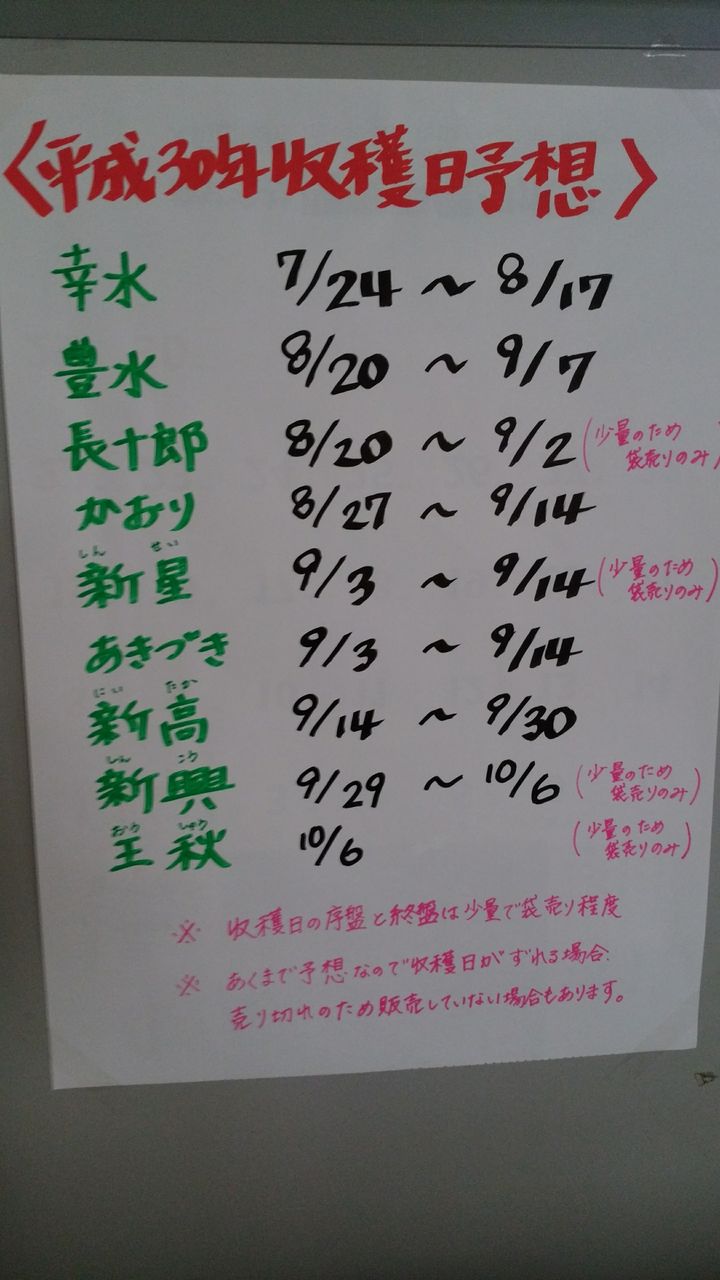 〈平成30年収穫日予想〉
幸水 7/24 〜 8/17
豊水 8/20 〜 9/7
長十郎 8/20 〜 9/2 (少量のため
袋売りのみ)
かおり 8/27 〜 9/14
しん せい
新星 9/3 〜 9/14 (少量のため
袋売りのみ)
あきづき 9/3 〜 9/14
にい たか
新高 9/14 〜 9/30
しん こう
新興 9/29 〜 10/6 (少量のため
袋売りのみ)
おう しゅう
王秋 10/6 (少量のため
袋売りのみ)
※ 収穫日の序盤と終盤は少量で袋売り程度
※ あくまで予想なので収穫日がずれる場合、
売り切れのため販売していない場合もあります。